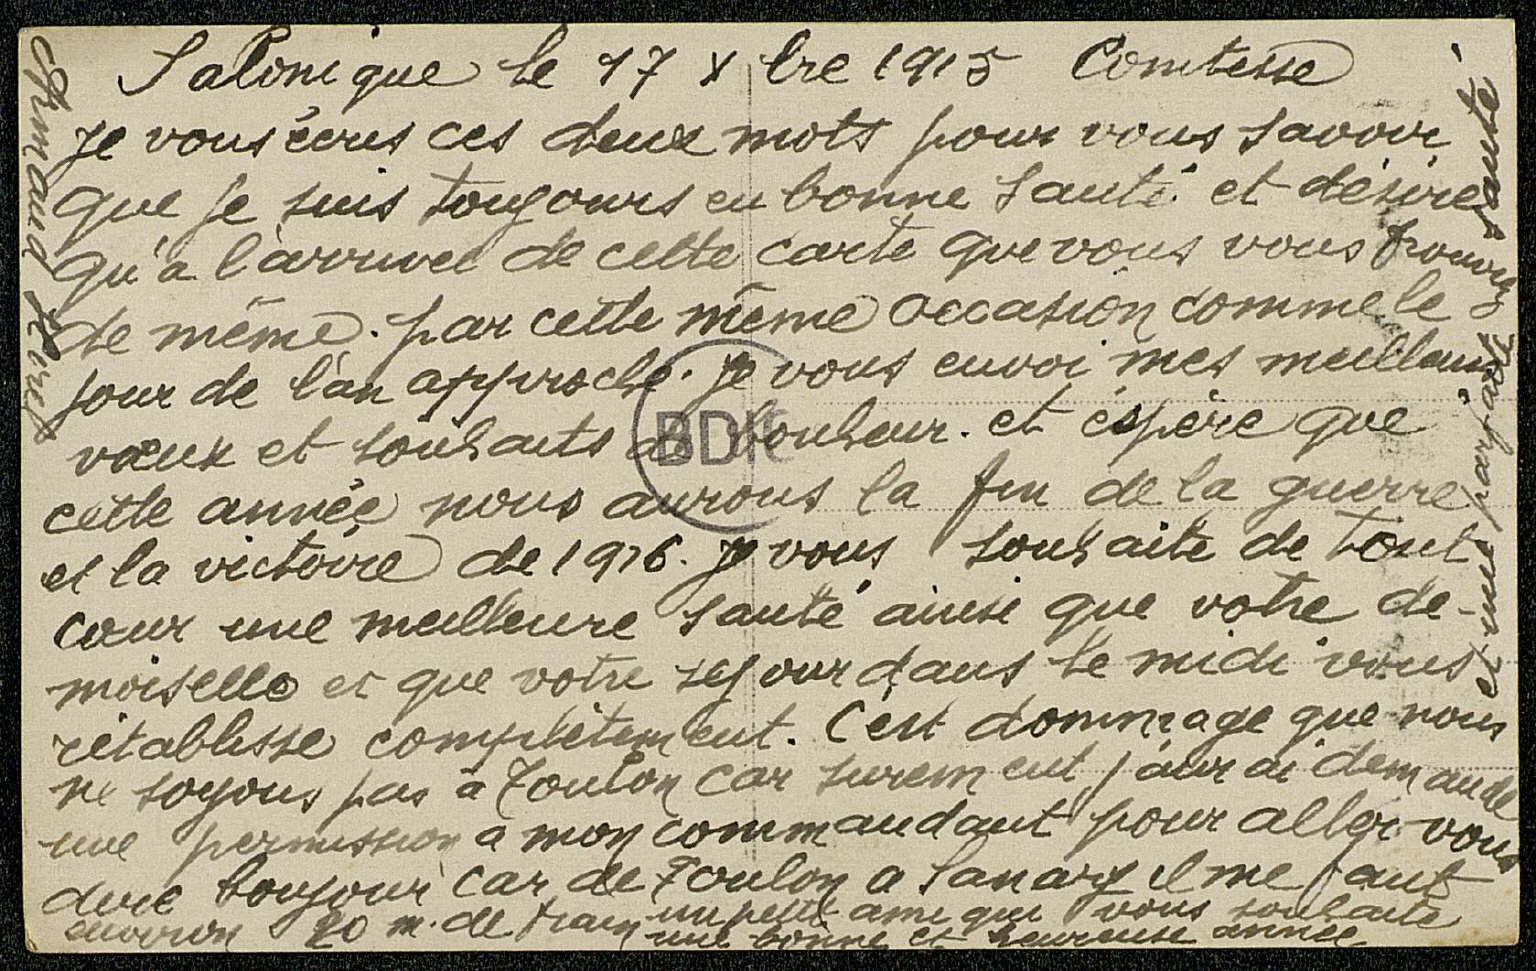 Salonique le 17 Xbre 1915 Comtesse
Je vous écris ces deux mots pour vous savoir
que je suis toujours en bonne santé et désire
qu'à l'arrivee de cette carte que vous vous trouviez
de même. par cette même occasion comme le
jour de l'an approche. Je vous envoi mes meilleurs
vœux et souhaits de bonheur. et éspère que
cette année nous aurons la fin de la guerre
et la victoire de 1916. Je vous souhaite de tout
cœur une meilleure santé ainsi que votre de-
moiselle et que votre sejour dans le midi vous
rétablisse complètement. C'est dommage que nous
ne soyons pas à Toulon car surement j'aurai demandé
une permission a mon commandant pour aller vous
dire bonjour car de Toulon a Sanary il me faut
environ 20 m. de train un petit ami qui vous souhaite
une bonne et heureuse année
et une parfaite santé
Armand
BDIC